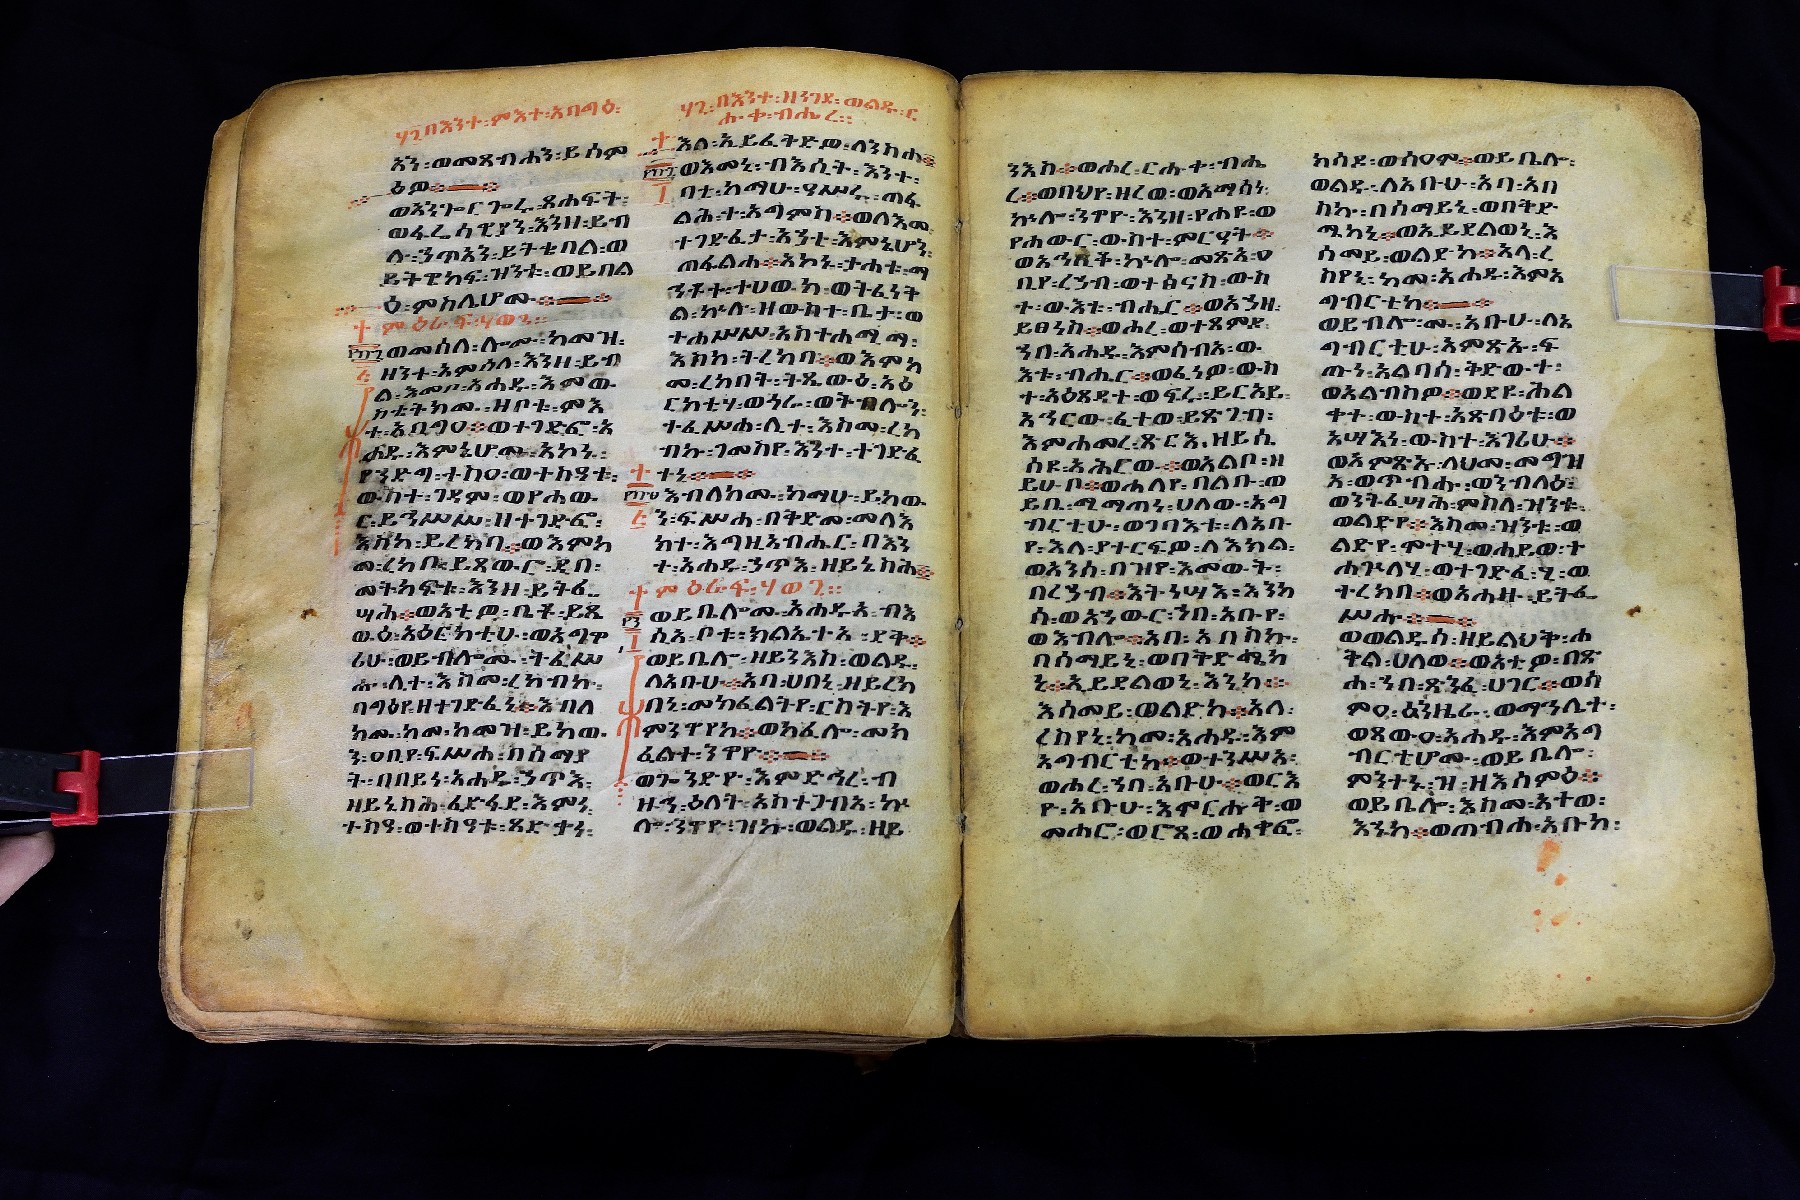 ሃ፯በእንተ፡ምእተ፡አባግዕ፡
እን፡ወመጻብሐን፡ይሰም
ዕዎ
ወአንጐርጐሩ፡ጸሐፍት፡
ወፈሪሳዊያን፡እንዘ፡ይብ
ሉ፡ንጥአን፡ይትቄበል፡ወ
ይትዌከፍ፡ዝንተ፡ወይበል
ዕ፡ምስሌሆሙ
ምዕራፍ፡ሃወ፩፡
ወመሰለ፡ሎሙ፡ከመዝ፡
ዘንተ፡አምሳለ፡እንዘ፡ይብ
ል፡እመቦ፡አሐዱ፡እምው
ስቴትክሙ፡ዘቦቱ፡ምእ
ተ፡አባግዐ፡ወተገድፎ፡አ
ሐዱ፡እምኔሆሙ፡አኮኑ፡
የኀድግ፡ተስዐ፡ወተስዓቱ፡
ውስተ፡ገዳም፡ወየሐው
ር፡ይኅሥሥ፡ዘተገድፎ፡
እስከ፡ይረክቦ፡ወእምከ
መ፡ረከቦ፡ይጸውሮ፡ዲበ፡
መትከፍቱ፡እንዘ፡ይትፌ
ሣሕ፡ወአቲዎ፡ቤቶ፡ይጼ
ውዕ፡አዕርክቲሁ፡ወአግዋ
ሪሁ፡ወይብሎሙ፡ትፈሥ
ሑ፡ሊተ፡እስመ፡ረከብኩ፡
በግዕየ፡ዘተገድፈኒ፡እብለ
ክሙ፡ከመ፡ከመዝ፡ይከው
ን፡ዐቢየ፡ፍሥሐ፡በሰማያ
ት፡በበይነ፡አሐዱ፡ኃጥእ፡
ዘይኔስሕ፡ፈድፋደ፡እምነ፡
ተስዓ፡ወተስዓቱ፡ጻድቃነ፡
ሃ፯፡በእንተ፡ዘነገደ፡ወልዱ፡ር
ሑቀ፡ብሔረ፡፡
እለ፡ኢይፈትድዎ፡ለንስሐ
ወእመኒ፡ብእሲት፡እንተ፡
ባቲ፡ከማሁ፡ዓሥሩ፡ጠፋ
ልሕ፡ተ፡አግምስ፡ወለእመ
ተገድፈታ፡አንቲ፡እምኔሆን፡
ጠፋልሐ፡አኮኑ፡ታሐቱ፡ማ
ኅቶተ፡ተሀውክ፡ወትፈነት
ል፡ኵሎ፡ዘውስተ፡ቤታ፡ወ
ተሐሥሥ፡አስተሐሚማ፡
እስከ፡ትረክባ፡ወእምከ
መ፡ረከበት፡ትጼውዕ፡አዕ
ርክቲሃ፡ወጎራ፡ወትብሎን፡
ተፈሥሐ፡ሊተ፡እስመ፡ረከ
ብኩ፡ገመስየ፡እንተ፡ተገድፈ
ተኒ
እብለክሙ፡ከማሁ፡ይከው
ን፡ፍሥሐ፡በቅድመ፡መላእ
ክተ፡እግዚአብሔር፡በእን
ተ፡አሐዱ፡ኃጥእ፡ዘይኔስሕ
ምዕራፍ፡ሃወ፪፡፡
ወይቤሎሙ፡አሐዱ፡አብእ
ሲአ፡ቦቱ፡ክልኤተአ፡ደቅ
ወይቤሎ፡ዘይንእስ፡ወልዱ፡
ለአቡሁ፡አባ፡ሀበኒ፡ዘይረክ
በኒ፡መክፈልትየ፡ርስትየ፡እ
ምንዋየከ፡ወከፈሎ፡መክ
ፈልተ፡ንዋዮ
ወጐንድዮ፡እምድኅረ፡ብ
ዙኅ፡ዕለት፡አስተጋብአ፡ኵ
ሎ፡ንዋዮ፡ዝኩ፡ወልዱ፡ዘይ
ንእስ፡ወሐረ፡ርሑቀ፡ብሔ
ረ፡ወበህየ፡ዘረወ፡ወአማሰነ፡
ኵሎ፡ንዋዮ፡እንዘ፡የሐዩ፡ወ
የሐውር፡ውስተ፡ምርዓት፡
ወአኅሊቆ፡ኵሎ፡መጽአ፡ዐ
ቢየ፡ረኃብ፡ወተፅናስ፡ውስ
ተ፡ውእቱ፡ብሔር፡ወአኃዘ፡
ይፀነስ፡ወሐረ፡ወተጸምደ፡
ኀበ፡አሐዱ፡እምሰብአ፡ው
እቱ፡ብሔር፡ወፈነዎ፡ውስ
ተ፡አዕጸዳተ፡ወፍሬ፡ይርአይ፡
አኅርው፡ፈተወ፡ይጽገብ፡
እምሐመረ፡ጽርእ፡ዘይሴ
ሰዩ፡አሕርው፡ወአልቦ፡ዘ
ይሁቦ፡ወሐለየ፡በልቡ፡ወ
ይቤ፡ሚማጠነ፡ሀለው፡አግ
ብርቲሁ፡ወገባእቱ፡ለአቡ
የ፡እለ፡ያተርፍዎ፡ለእክል፡
ወአንሰ፡በዝየ፡እመውት፡
በረኃብ፡እትነሣእ፡እንከ
ሰ፡ወአኀውር፡ኀበ፡አቡየ፡
ወእብሎ፡አባ፡አበስኩ፡
በሰማይኒ፡ወበቅድሜከ
ኒ፡ኢይደልወኒ፡እንከ፡
እሰመይ፡ወልድከ፡አላ፡
ረስየኒ፡ከመ፡አሐዱ፡እም
አግብርቲከ፡ወተንሥአ፡
ወሐረ፡ኀበ፡አቡሁ፡ወርእ
ዮ፡አቡሁ፡እምርሑቅ፡ወ
መሐሮ፡ወሮጸ፡ወሐቀፎ፡
ክሳዶ፡ወሰዐም፡ወይቤሎ፡
ወልዱ፡ለአቡሁ፡አባ፡አበ
ስኩ፡በሰማይኒ፡ወበቅድ
ሜከኒ፡ወኢይደልወኒ፡እ
ሰመይ፡ወልድከ፡አላ፡ረ
ስየኒ፡ከመ፡አሐዱ፡እምአ
ግብርቲከ
ወይብሎሙ፡አቡሁ፡ለአ
ግብርቲሁ፡አምጽኡ፡ፍ
ጡነ፡አልባሰ፡ቅድው፡ተ፡
ወአልብስዎ፡ወደዩ፡ሕል
ቀተ፡ውስተ፡አጽባዕቱ፡ወ
አሣእነ፡ውስተ፡እገሪሁ፡
ወአምጽኡ፡ላህመ፡መግዝ
አ፡ወጥብሑ፡ወንብላዕ፡
ወንትፈሣሕ፡ምስለ፡ዝንቱ፡
ወልድየ፡እስመ፡ዝንቱ፡ወ
ልድየ፡ሞተሂ፡ወሐይወ፡ተ
ሐጕለሂ፡ወተገድፈ፡ሂ፡ወ
ተረክበ፡ወአሐዙ፡ይትፌ
ሥሑ
ወወልዱሰ፡ዘይልህቅ፡ሐ
ቅል፡ሀለወ፡ወአቲዎ፡በጽ
ሐ፡ኀበ፡ጽንፈ፡ሀገር፡ወሰ
ምዐ፡ዕንዚራ፡ወማኅሌተ፡
ወጸውዐ፡አሐዱ፡እምአግ
ብርቲሆሙ፡ወይቤሎ፡
ምንትኑ፡ዝ፡ዘእሰምዕ፡
ወይቤሎ፡እስመ፡አተወ፡
እኁከ፡ወጠብሐ፡አቡከ፡